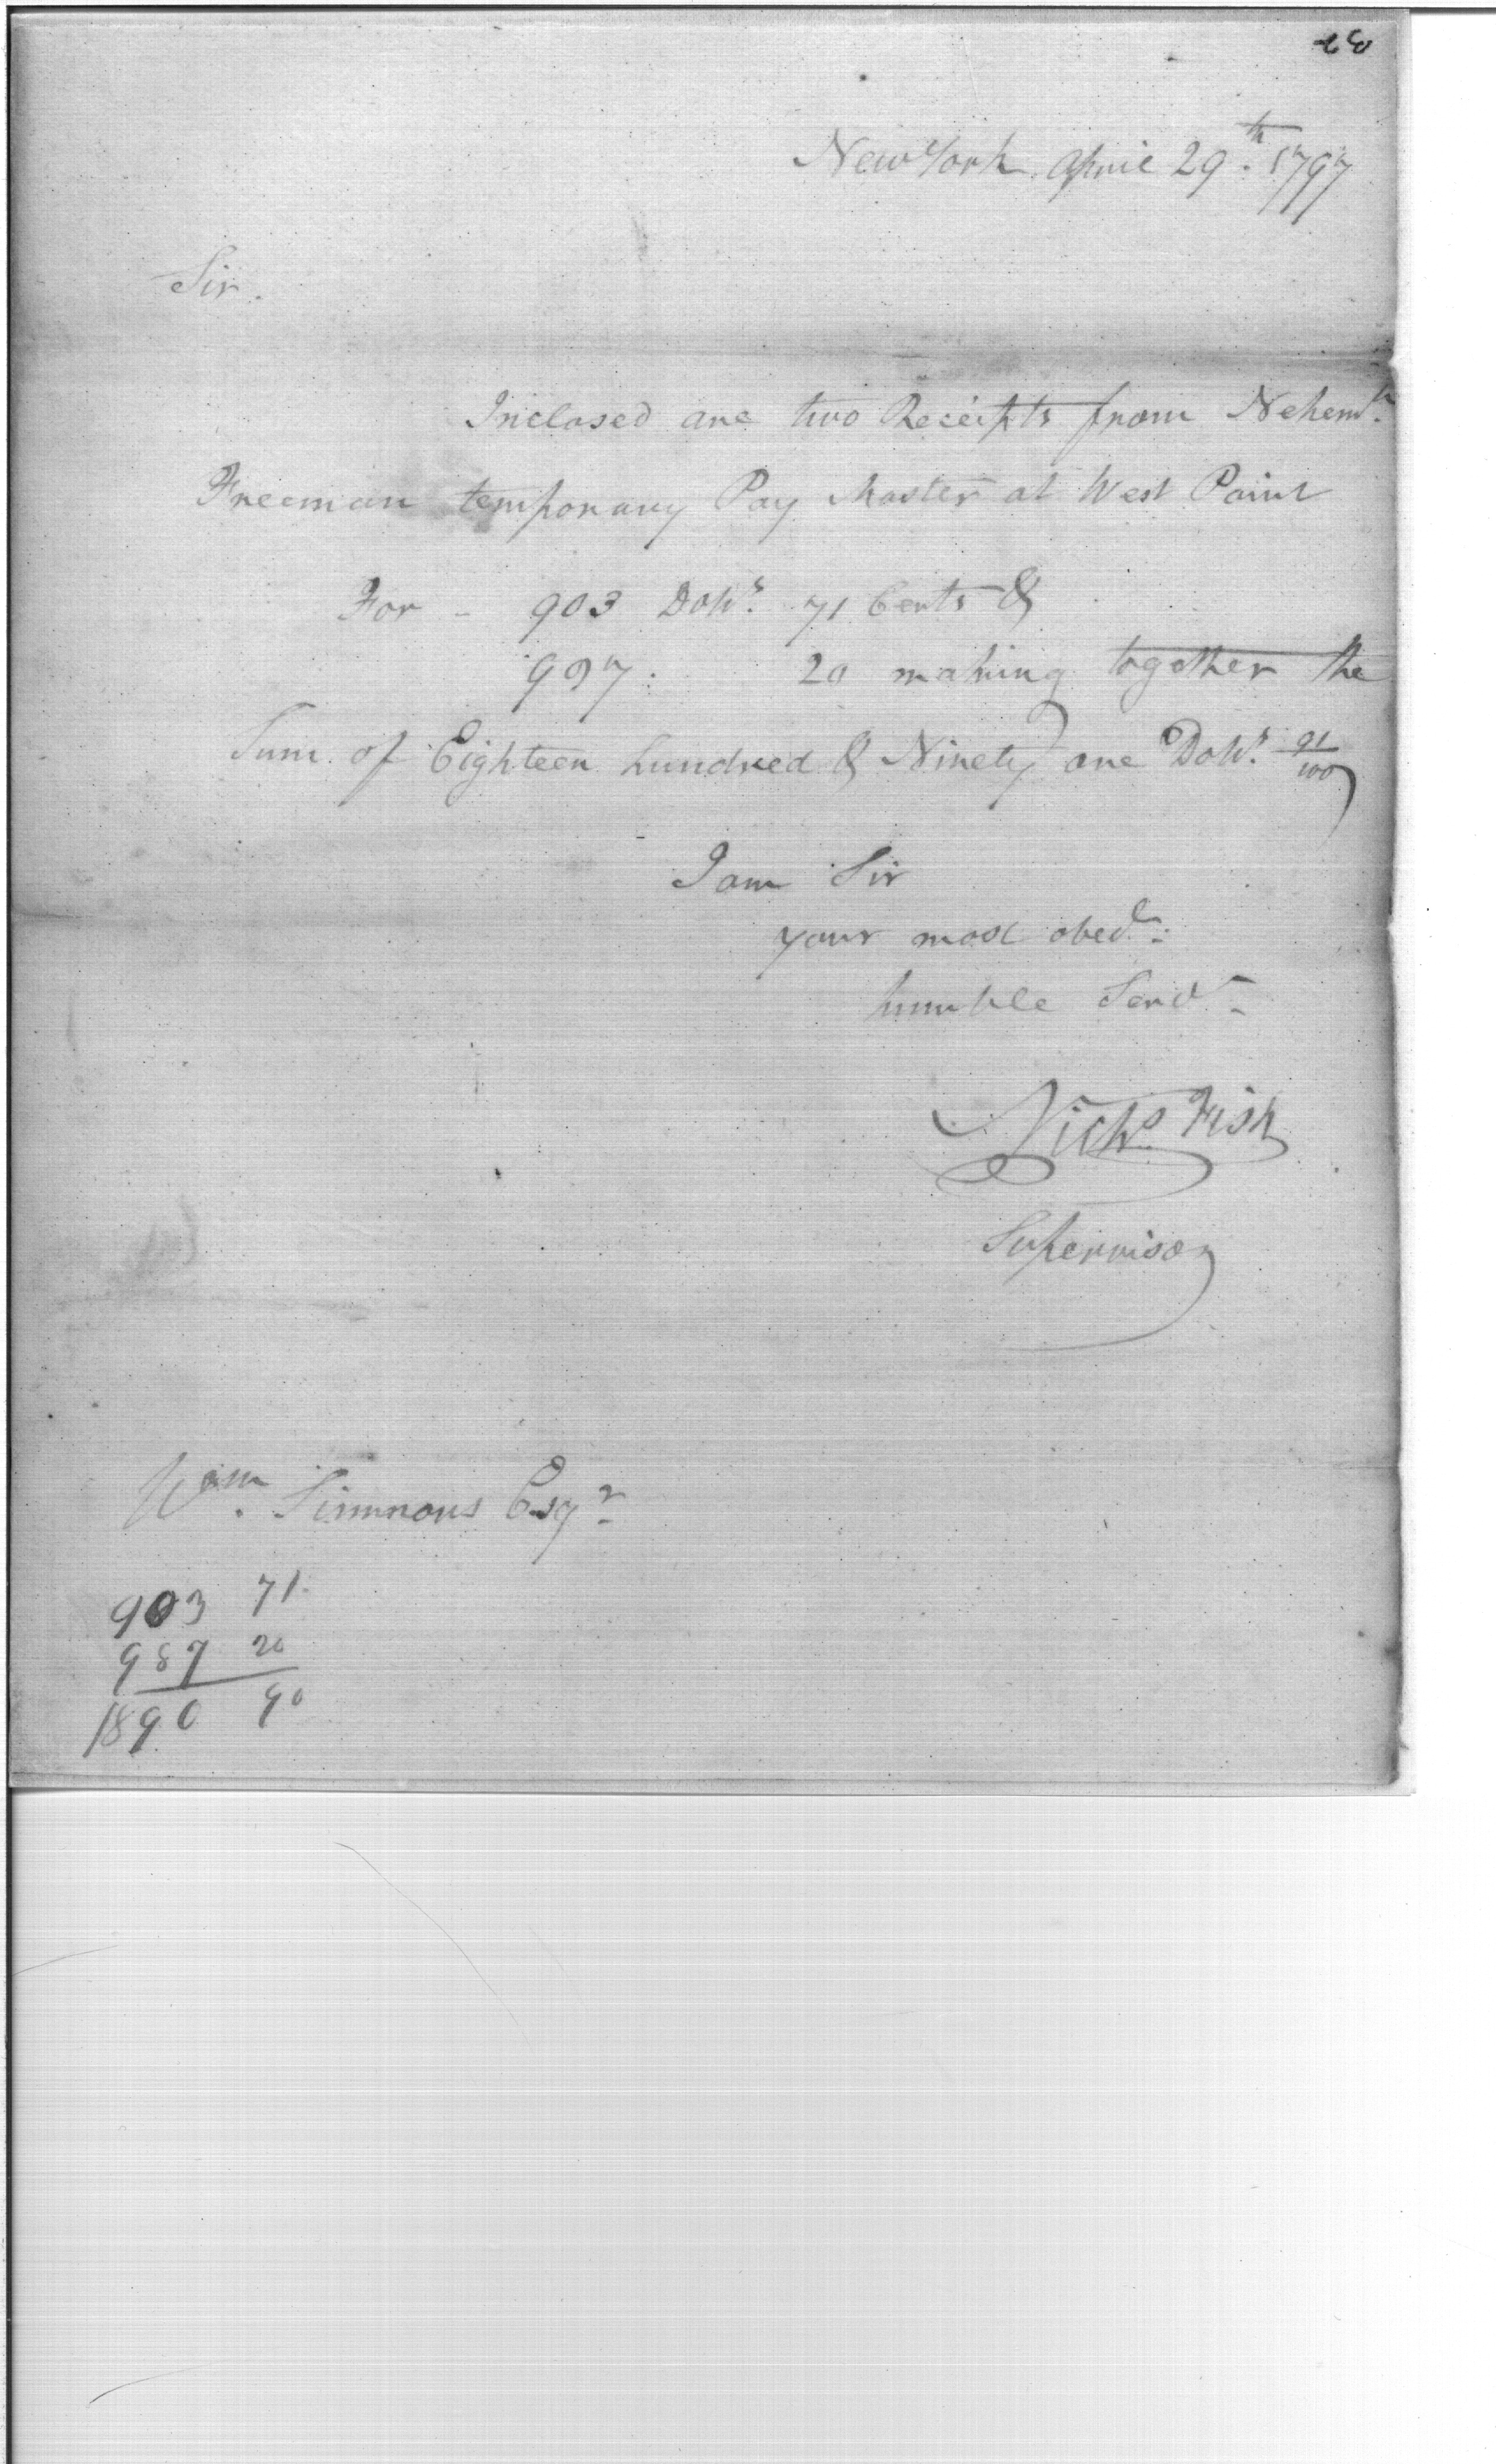 New York April 29th. 1797
Sir.
Inclosed are two Receipts from Nehemh.
Freeman temporary Pay Master at West Point
For - 903 Dolls. 71 Cents &
987. 20 making together the
Sum of Eighteen hundred & Ninety one Dolls. 91/100
I am Sir
your most obedt.
humble Servt.
Nichs Fish
Supervisor
Wm. Simmons Esqr.
903 71
987 20
1890 90